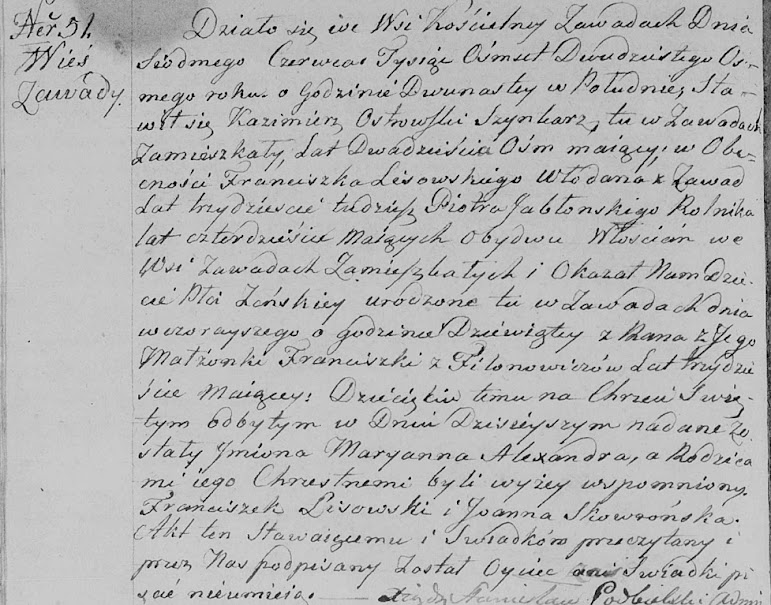 Ner 51.
Wieś
Zawady.
Działo się we Wsi Kościelney Zawadach Dnia
Siodmego Czerwca Tysiąc Ośmset Dwudziestego Os-
mego roku o Godzinie Dwunastey w Południe, Sta-
wił się Kazimierz Ostrowski Szynkarz, tu w Zawadach
Zamieszkały, Lat Dwadzieścia Ośm maiący, w Obe-
cności Franciszka Lisowskiego Włodarza z Zawad
Lat trzydzieście tudzież Piotra Jabłonskiego Rolnika
lat czterdzieście Maiących Obydwu Włoscian we
Wsi Zawadach Zamieszkałych i Okazał Nam Dzie-
cie Płci Zeńskiey urodzone tu w Zawadach dnia
wczorayszego o godzinie Dziewiątey z Rana z Jego
Małżonki Franciszki z Filonowiczów Lat trzydzie
ście Maiącey: Dziecięciu temu na Chrzcie Swię-
tym odbytym w Dniu Dzisieyszym nadane zo-
stały Jmiona Maryanna Alexandra, a Rodzica
mi iego Chrzestnemi byli wyżey wspomniony
Franciszek Lisowski i Joanna Skowrońska.
Akt ten Stawaiącemu i Swiadkom przeczytany i
przez Nas podpisany Został Oyciec ani Swiadki pi
sać nieumieią. Xiądz Stanisław Podbielski Admi